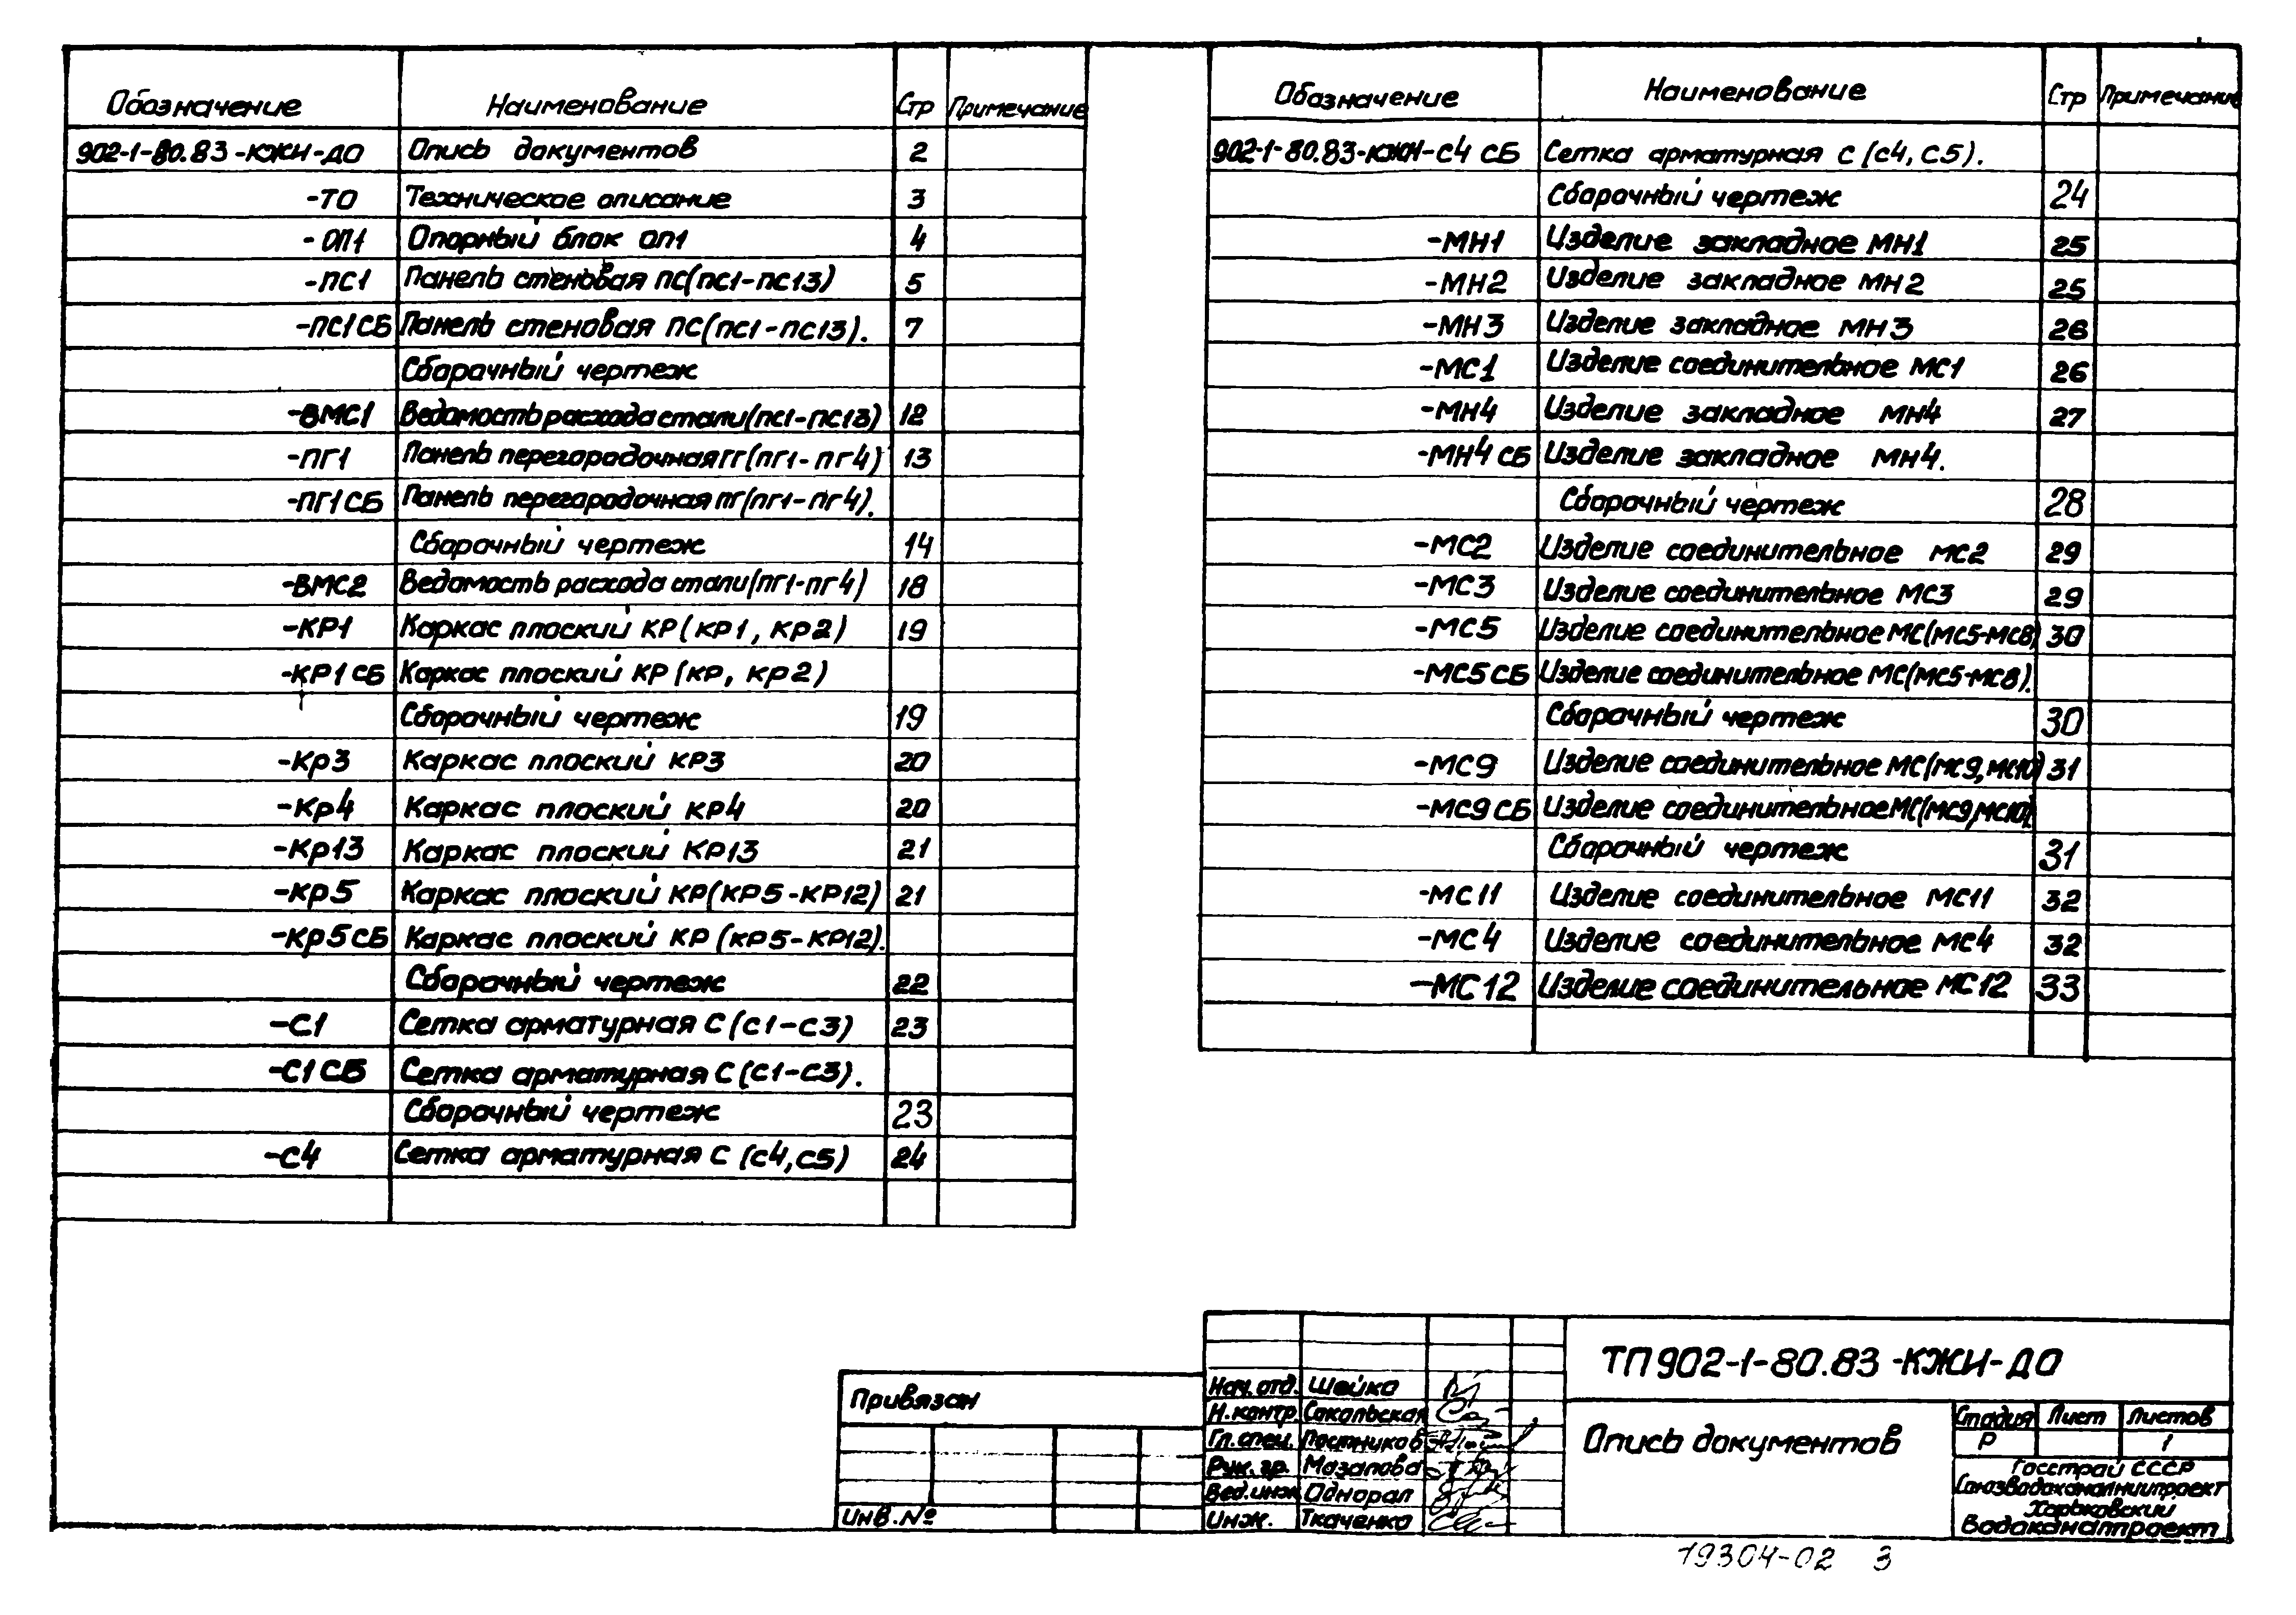 Обозначение Наименование Стр Примечание
902-1-80.83-КЖИ-ДО Опись документов 2
-ТО Техническое описание 3
-ОП1 Опорный блок ОП1 4
-ПС1 Панель стеновая ПС(ПС1-ПС13) 5
-ПС1СБ Панель стеновая ПС(ПС1-ПС13). 7
Сборочный чертеж
-ВМС1 Ведомость расхода стали(ПС1-ПС13) 12
-ПГ1 Панель перегородочная ПГ(ПГ1-ПГ4) 13
-ПГ1СБ Панель перегородочная ПГ(ПГ1-ПГ4).
Сборочный чертеж 14
-ВМС2 Ведомость расхода стали(ПГ1-ПГ4) 18
-КР1 Каркас плоский КР(КР1, КР2) 19
-КР1СБ Каркас плоский КР(КР, КР2)
Сборочный чертеж 19
-Кр3 Каркас плоский КР3 20
-Кр4 Каркас плоский КР4 20
-Кр13 Каркас плоский КР13 21
-Кр5 Каркас плоский КР(КР5-КР12) 21
-Кр5СБ Каркас плоский КР(КР5-КР12).
Сборочный чертеж 22
-С1 Сетка арматурная С(С1-С3) 23
-С1СБ Сетка арматурная С(С1-С3).
Сборочный чертеж 23
-С4 Сетка арматурная С(С4,С5) 24
Обозначение Наименование Стр Примечание
902-1-80.83-КЖИ-С4 СБ Сетка арматурная С(С4, С5).
Сборочный чертеж 24
-МН1 Изделие закладное МН1 25
-МН2 Изделие закладное МН2 25
-МН3 Изделие закладное МН3 26
-МС1 Изделие соединительное МС1 26
-МН4 Изделие закладное МН4 27
-МН4СБ Изделие закладное МН4.
Сборочный чертеж 28
-МС2 Изделие соединительное МС2 29
-МС3 Изделие соединительное МС3 29
-МС5 Изделие соединительное МС(МС5-МС8) 30
-МС5СБ Изделие соединительное МС(МС5-МС8).
Сборочный чертеж 30
-МС9 Изделие соединительное МС(МС9,МС10) 31
-МС9СБ Изделие соединительное МС(МС9,МС10).
Сборочный чертеж 31
-МС11 Изделие соединительное МС11 32
-МС4 Изделие соединительное МС4 32
-МС12 Изделие соединительное МС12 33
Привязан
Инв.№
Нач.отд. Шейко
Н.контр. Сокольская
Гл.спец. Постников
Рук.гр. Мазалова
Вед.инж. Однорал
Инж. Ткаченко
ТП902-1-80.83-КЖИ-ДО
Опись документов
Стадия Лист Листов
Р 1
Госстрой СССР
Союзводоканалниипроект
Харьковский
Водоканалпроект
19304-02 3